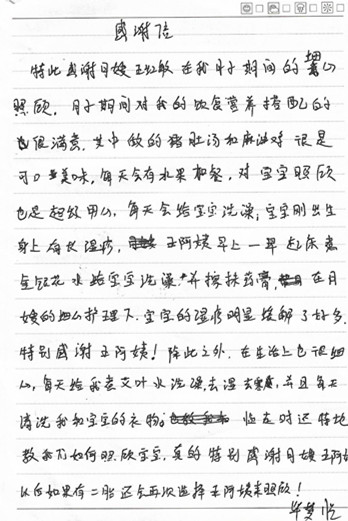 感谢信
特此感谢月嫂王红敏在我月子期间的细心
照顾，月子期间对我的饮食营养搭配的
也很满意，其中做的猪肚汤和麻油鸡很是
可口美味，每天会有水果加餐，对宝宝照顾
也是超级用心，每天会给宝宝洗澡，宝宝刚出生
身上有长湿疹，王阿姨早上一早起床煮
金银花水给宝宝洗澡，并擦抹药膏，在月
嫂的细心护理下，宝宝的湿疹明显缓解了好多，
特别感谢王阿姨！除此之外，在生活上也很细
心，每天给我煮艾叶水洗澡，去湿去寒，并且每天
清洗我和宝宝的衣物。临走时还特地
教我们如何照顾宝宝，真的特别感谢月嫂王阿姨
以后如果有二胎还会再次选择王阿姨来照顾！